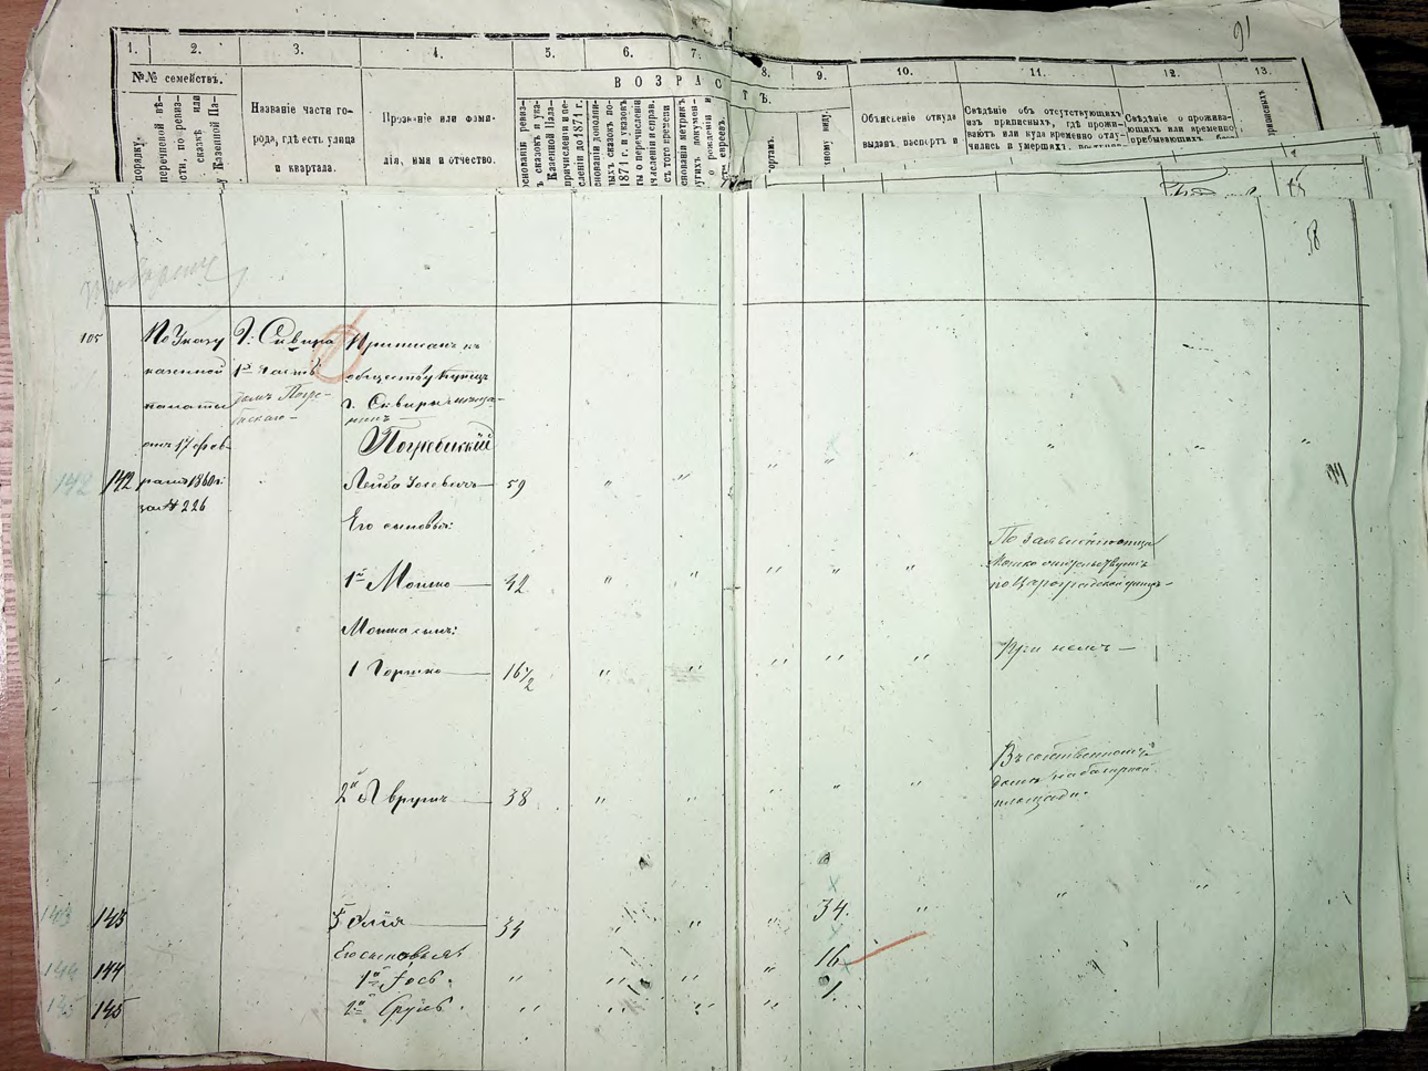 91
1. 2. 3. 4. 5. 6. 7. 8. 9. 10. 11. 12. 13.
№№ семействъ.
порядку.
перечневой вѣ-
сти, по ревиз-
сказкѣ или
у Казенной Па-
Названіе части го-
рода, гдѣ есть улица
и квартала.
Прозваніе или фами-
лія, имя и отчество.
ВОЗРАСТЪ.
основаніи ревиз-
ъ сказокъ и ука-
Казенной Пала-
причисленіи и пе-
сленіи до 1871 г.
нованіи дополни-
ыхъ сказокъ по-
1871 г. и указовъ
ты о перечисленіи
ачисленіи и справ.
съ того времени
снованіи метрикъ
угихъ докумен-
о рожденіи и
евреевъ.
ортамъ.
жному виду.
Объясненіе откуда
выданъ паспортъ и
Свѣдѣніе объ отсутствующихъ
изъ приписныхъ, гдѣ прожи-
ваютъ или куда временно отлу-
чились и умершихъ.
Свѣдѣніе о прожива-
ющихъ или временно
пребывающихъ
58
105
По Указу
казенной
палаты
отъ 17 фев-
раля 1860 г.
за № 226
Г. Сквира
1я часть
домъ Погре-
бискаго
Приписанъ къ
обществу купецъ
г. Сквиры
Погребискій
142 142 Лейба Іосевичъ 59 " " " " " " "
Его сыновья:
1й Мошко 42 " " " " "
По заявленію отца
Мошко
по Цареградской улицѣ
Мошка сынъ:
1 Гершко 16½ " " " " "
При немъ
2й Аврумъ 38 " " " "
Въ собственномъ
домѣ на базарной
площади.
143 143 3й Элія 34 " " " 34. " " "
Его сыновья
144 144 1й Іось. " " " " 16
145 145 2й Сруль. " " " " 1.